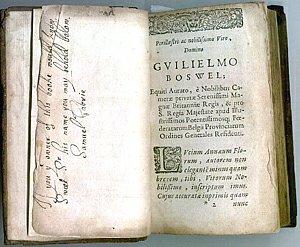 If you y owner of this booke would know
his name you may behold below.
Samuel
Perillustri ac nobilissimo Viro,
Domino
GVILIELMO
BOSWEL;
Equiti Aurato, è Nobilibus Ca-
meræ privatæ Serenissimi Ma-
gnæ Britanniæ Regis, & pro
S. Regia Majestate apud Illu-
strissimos Potentissimosq; Fœ-
deratarum Belgii Provinciarum
Ordines Generales Residenti.
LVcium Annæum Flo-
rum, autorem non
elegantem minus quàm
brevem, tibi, Virorum No-
bilissime, inscriptum imus.
Cujus accurata inprimis quum
* 2 nunc